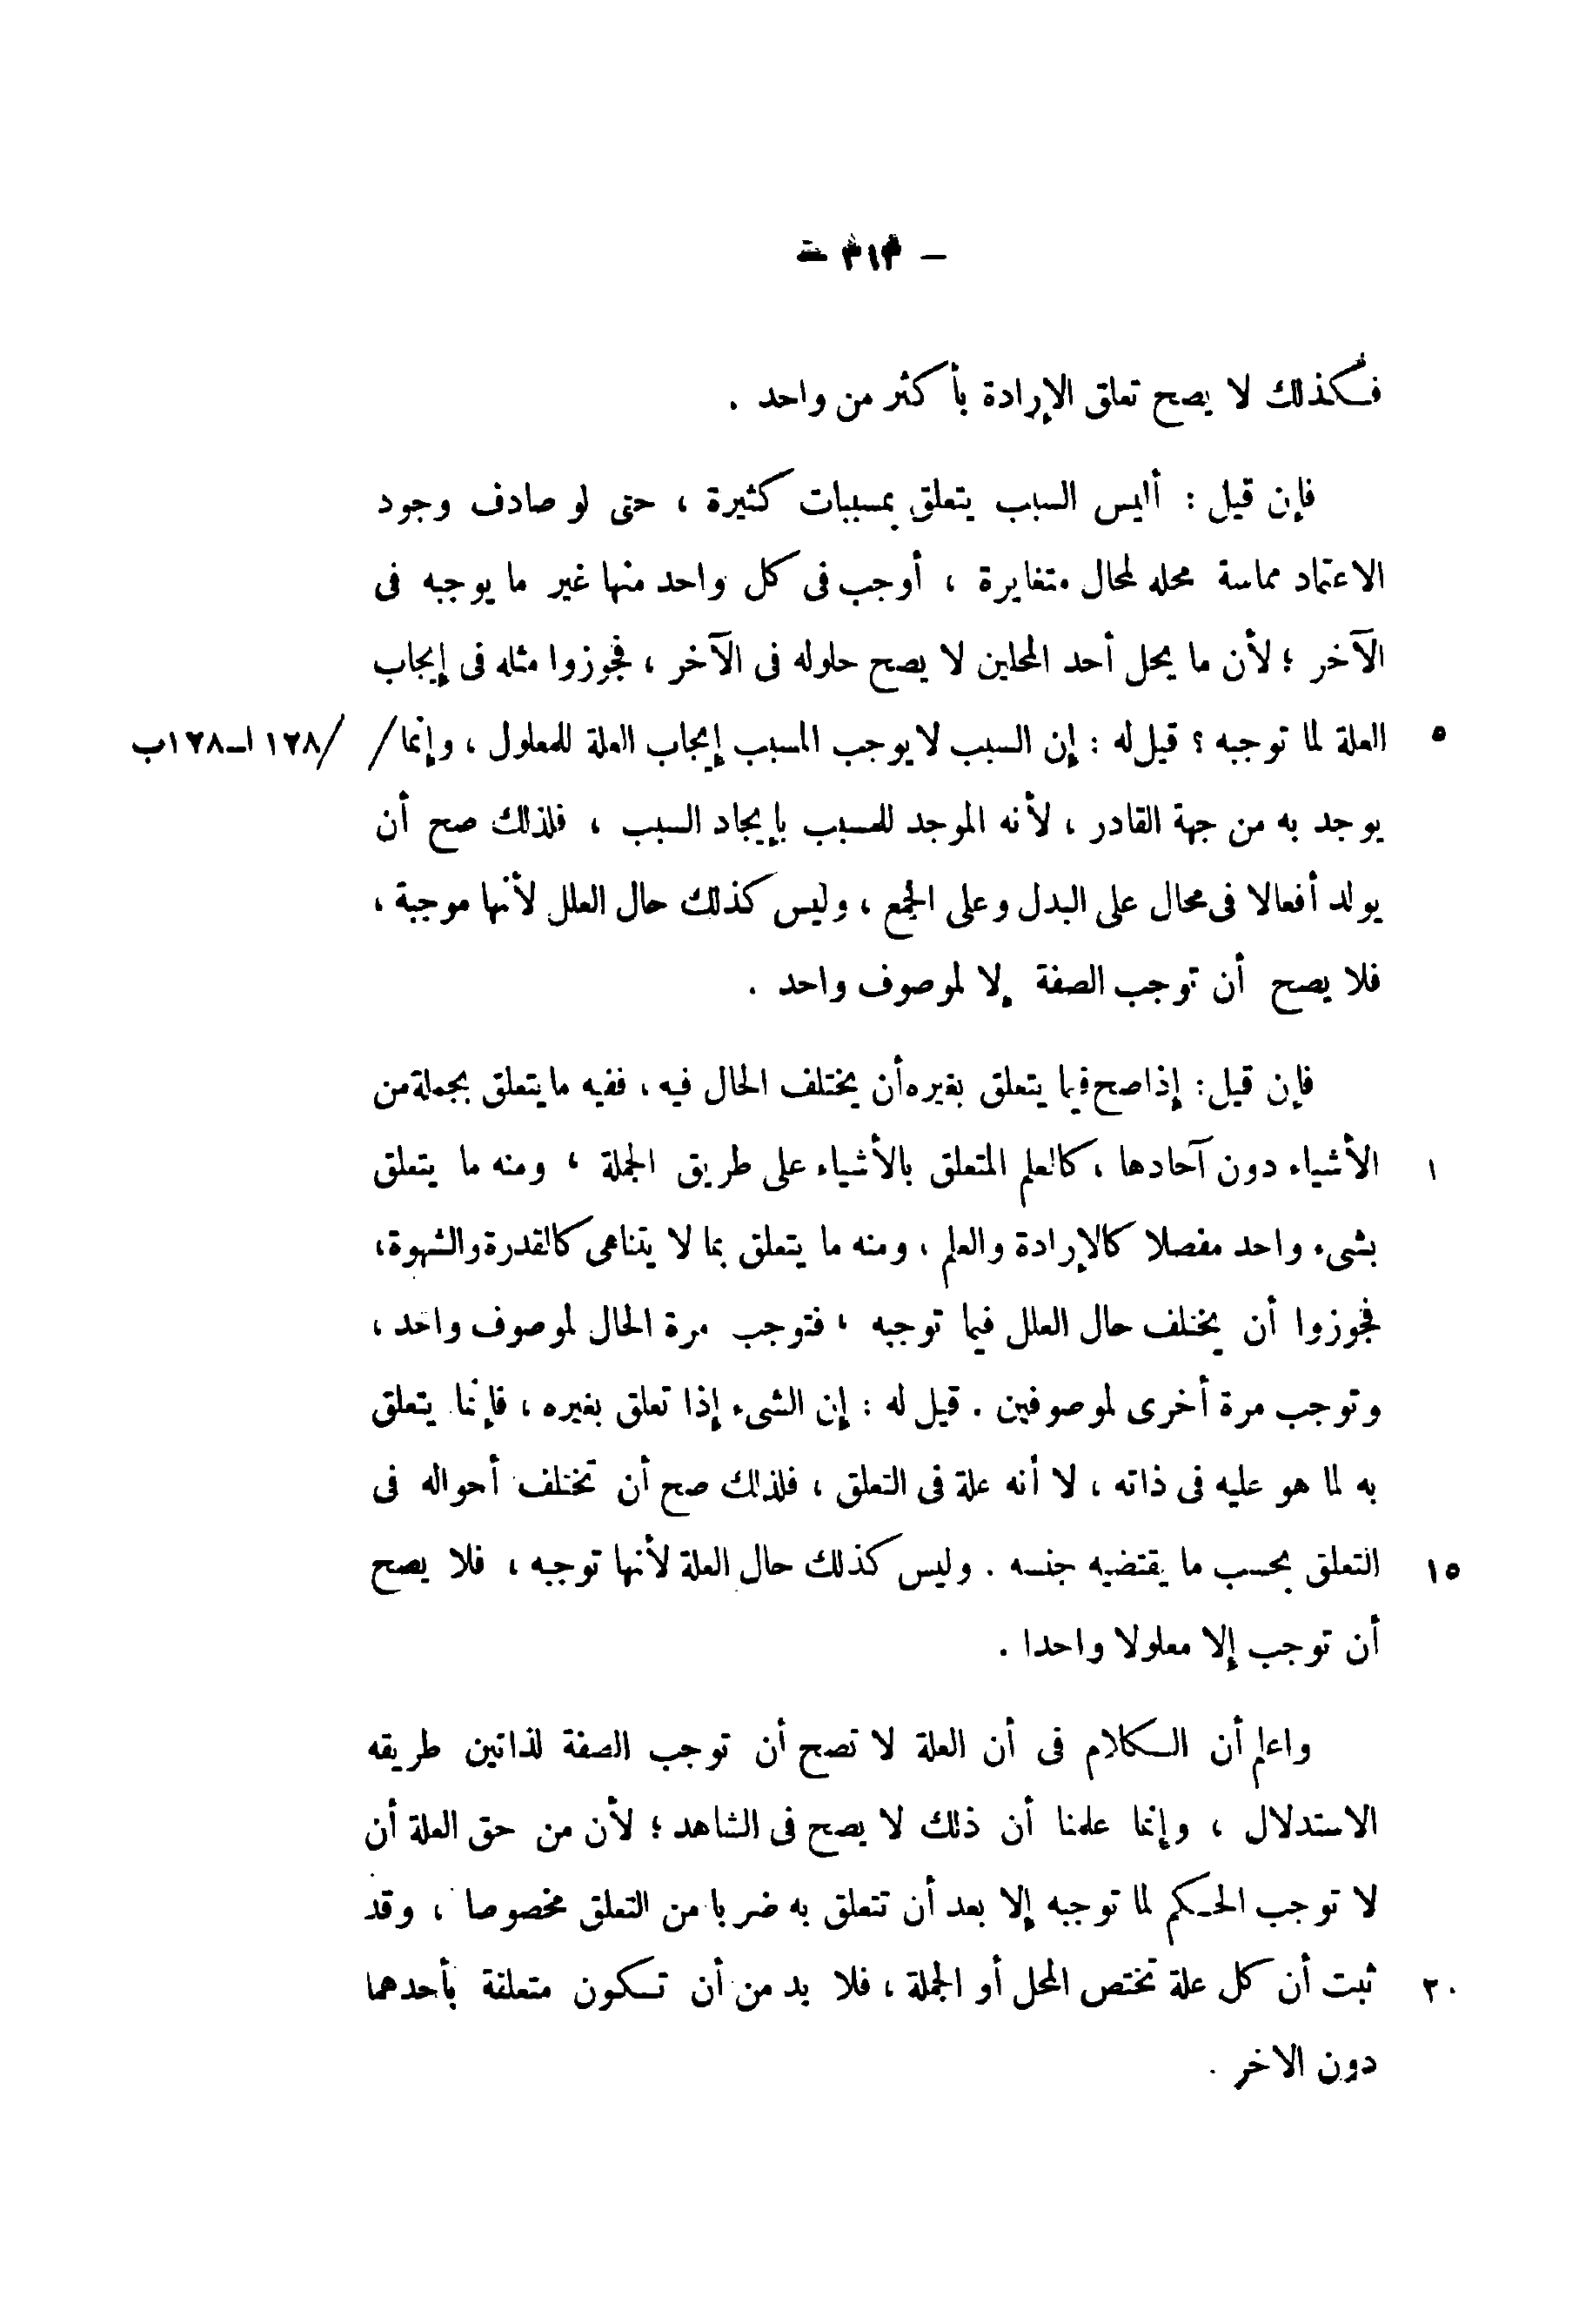 — ٣١٣ —
فكذلك لا يصح تعلق الإرادة بأكثر من واحد .
فإن قيل : أليس السبب يتعلق بمسببات كثيرة ، حتى لو صادف وجود
الاعتماد مماسة محله لمحال متغايرة ، أوجب فى كل واحد منها غير ما يوجبه فى
الآخر ؛ لأن ما يحل أحد المحلين لا يصح حلوله فى الآخر ، فجوزوا مثله فى إيجاب
٥ العلة لما توجبه ؟ قيل له : إن السبب لا يوجب المسبب إيجاب العلة للمعلول ، وإنما / /١٢٨ ا—١٢٨ب
يوجد به من جهة القادر ، لأنه الموجد للمسبب بإيجاد السبب ، فلذلك صح أن
يولد أفعالا فى محال على البدل وعلى الجمع ، وليس كذلك حال العلل لأنها موجبة ،
فلا يصح أن توجب الصفة إلا لموصوف واحد .
فإن قيل : إذا صح فيما يتعلق بغيره أن يختلف الحال فيه ، ففيه ما يتعلق بجملة من
١ الأشياء دون آحادها ، كالعلم المتعلق بالأشياء على طريق الجملة ، ومنه ما يتعلق
بشىء واحد مفصلا كالإرادة والعلم ، ومنه ما يتعلق بما لا يتناهى كالقدرة والشهوة ،
فجوزوا أن يختلف حال العلل فيما توجبه ، فتوجب مرة الحال لموصوف واحد ،
وتوجب مرة أخرى لموصوفين . قيل له : إن الشىء إذا تعلق بغيره ، فإنما يتعلق
به لما هو عليه فى ذاته ، لا أنه علة فى التعلق ، فلذلك صح أن تختلف أحواله فى
١٥ التعلق بحسب ما يقتضيه جنسه . وليس كذلك حال العلة لأنها توجبه ، فلا يصح
أن توجب إلا معلولا واحدا .
واعلم أن الكلام فى أن العلة لا تصح أن توجب الصفة لذاتين طريقه
الاستدلال ، وإنما علمنا أن ذلك لا يصح فى الشاهد ؛ لأن من حق العلة أن
لا توجب الحكم لما توجبه إلا بعد أن تتعلق به ضربا من التعلق مخصوصا ، وقد
٢٠ ثبت أن كل علة تختص المحل أو الجملة ، فلا بد من أن تكون متعلقة بأحدهما
دون الاخر .